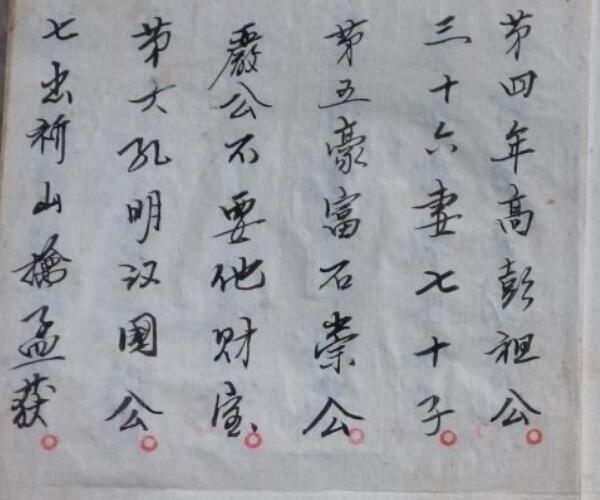 第四年高彭祖公
三十六妻七十子
第五豪富石崇公
嚴公不要他财宝
第六孔明汉国公
七出祈山擒孟获